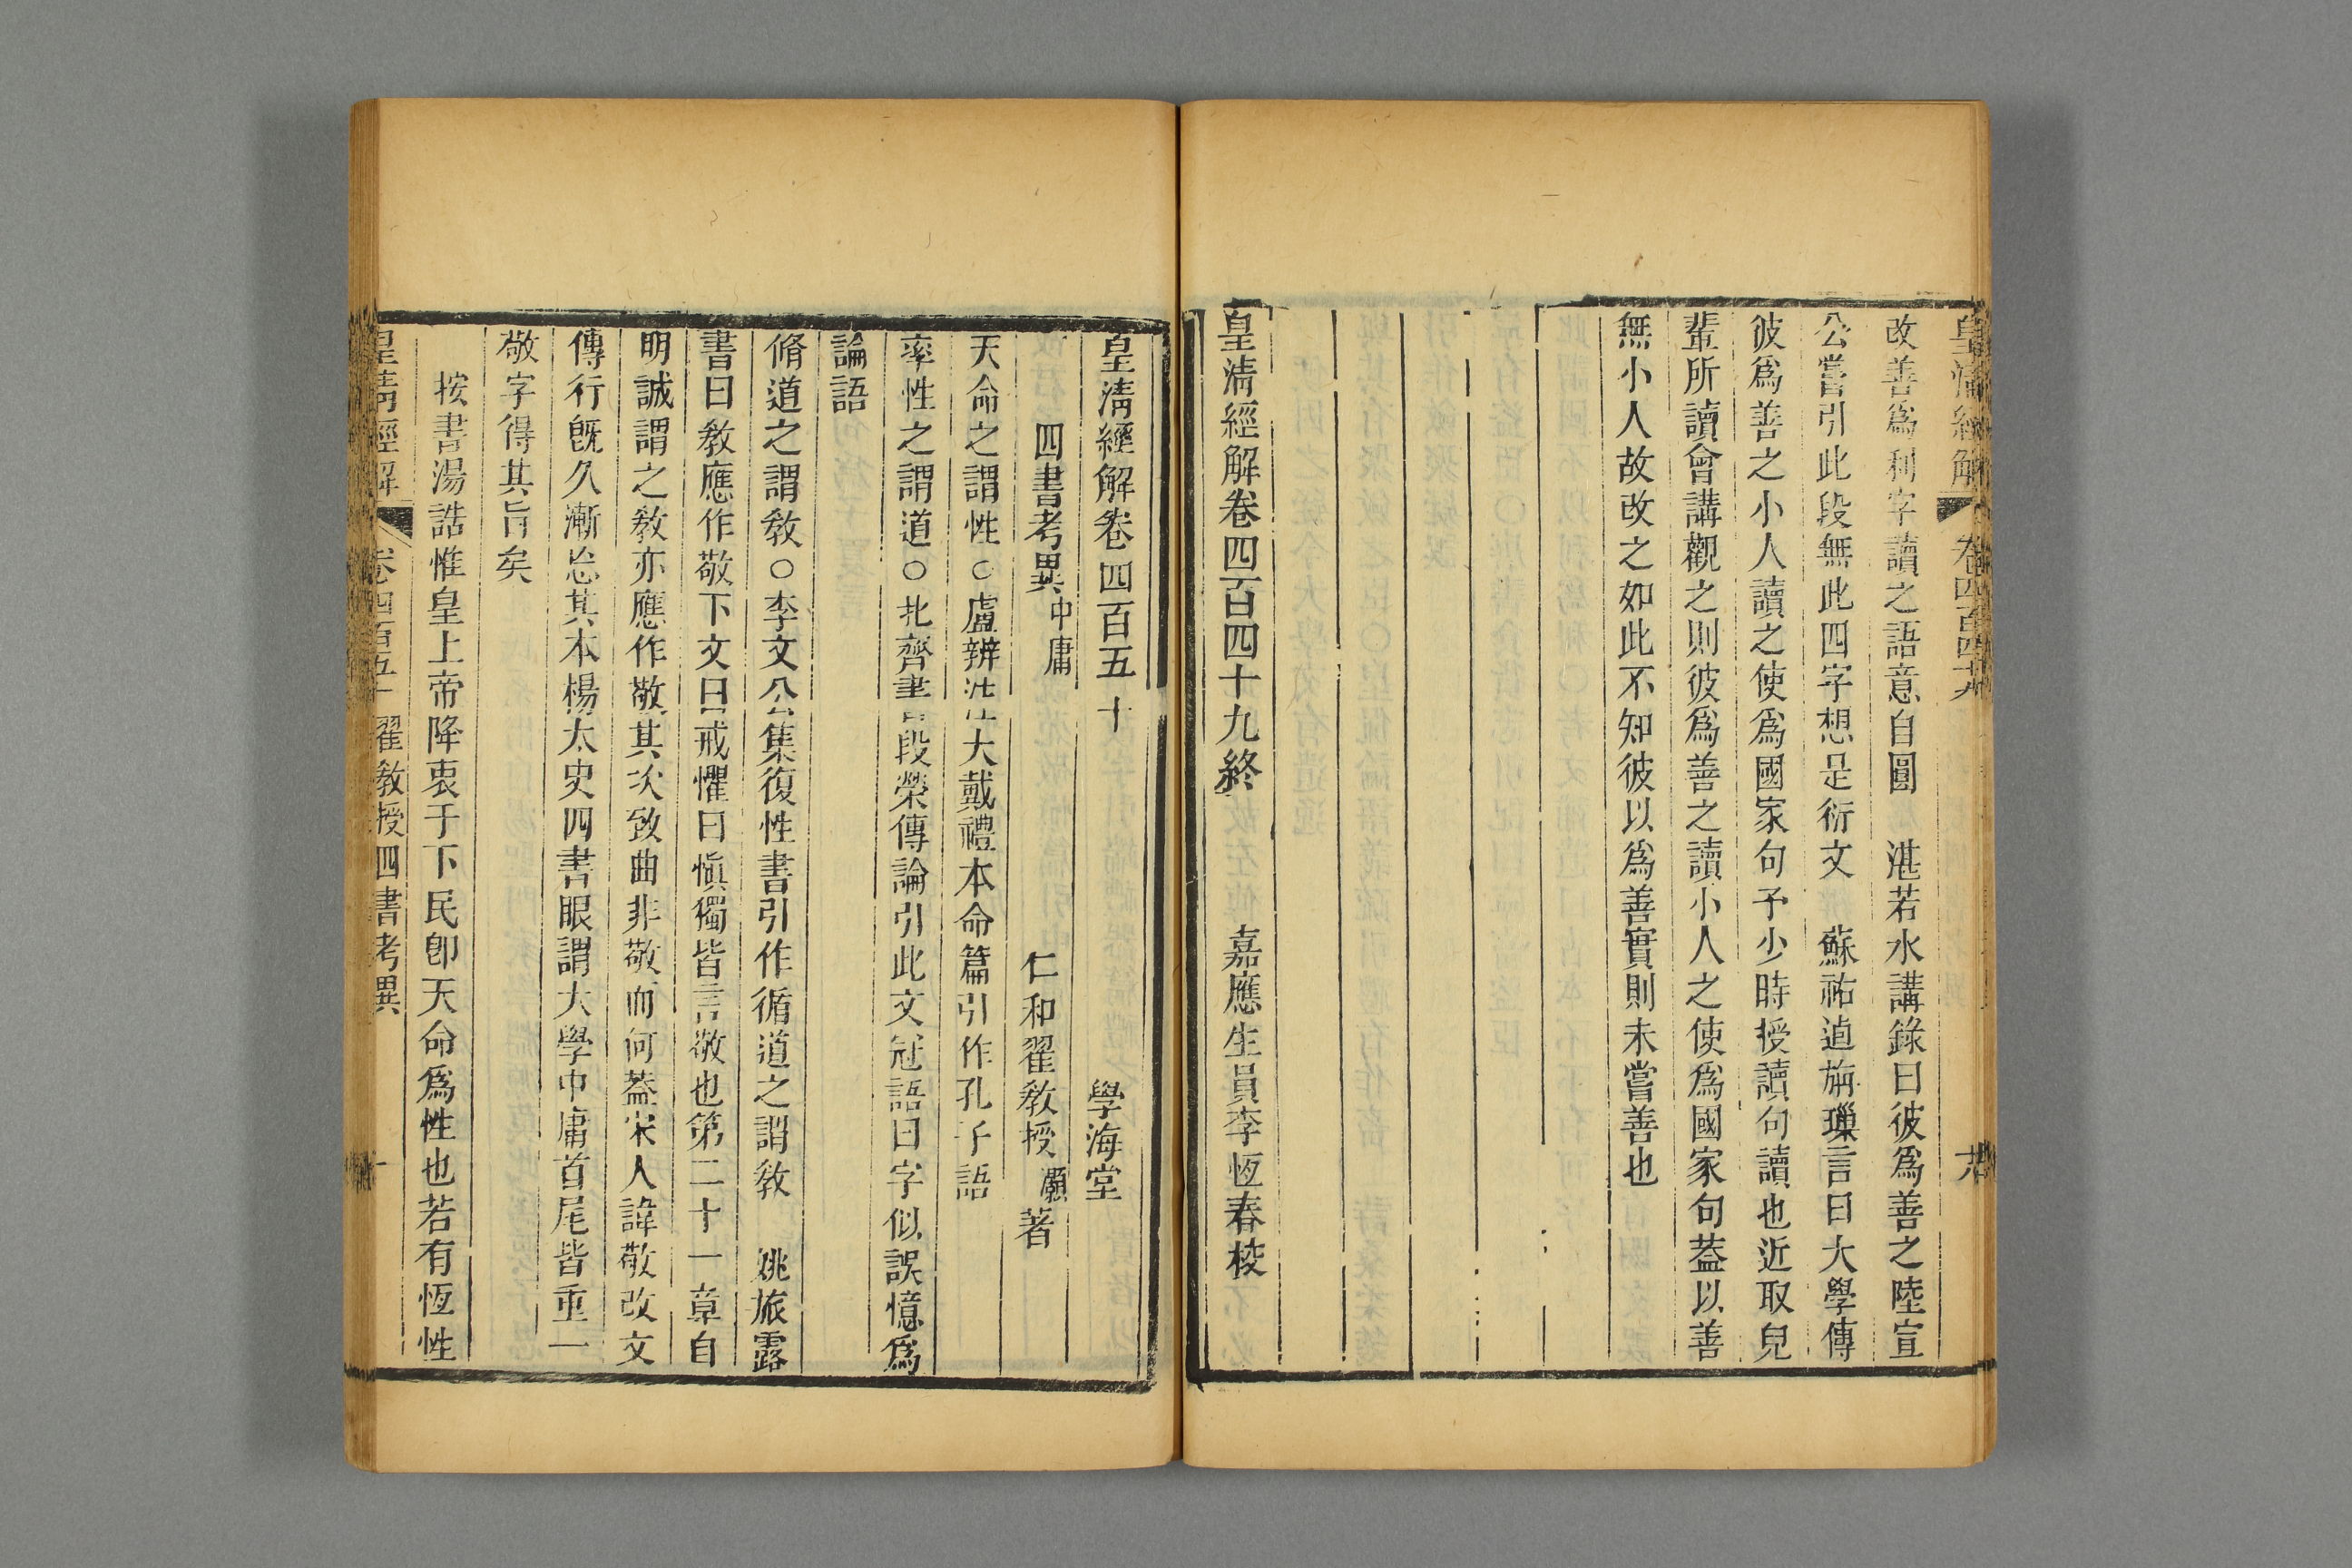 皇清經解
卷四百四十九
改善爲利字讀之語意自圓　湛若水講錄曰彼爲善之陸宣
公嘗引此段無此四字想是衍文　蘇祐逌旃璅言曰大學傳
彼爲善之小人讀之使爲國家句予少時授讀句讀也近取兒
輩所讀會講觀之則彼爲善之讀小人之使爲國家句葢以善
無小人故改之如此不知彼以爲善實則未嘗善也
皇清經解卷四百四十九終　嘉應生員李恆春校
皇清經解卷四百五十　學海堂
四書考異中庸　仁和翟教授灝著
天命之謂性○盧辨注大戴禮本命篇引作孔子語
率性之謂道○北齊書段榮傳論引此文冠語曰字似誤憶爲
論語
脩道之謂教○李文公集復性書引作循道之謂教　姚旅露
書曰教應作敬下文曰戒懼曰愼獨皆言敬也第二十一章自
明誠謂之教亦應作敬其次致曲非敬而何葢宋人諱敬改文
傳行旣久漸忘其本楊太史四書眼謂大學中庸首尾皆重一
敬字得其旨矣
按書湯誥惟皇上帝降衷于下民卽天命爲性也若有恆性
皇清經解
卷四百五十　翟教授四書考異
一